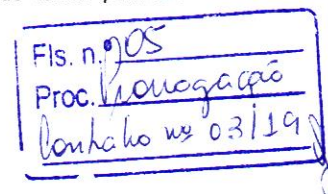 Fls. n.º 05
Proc. Prorrogação
Contrato nº 03/19